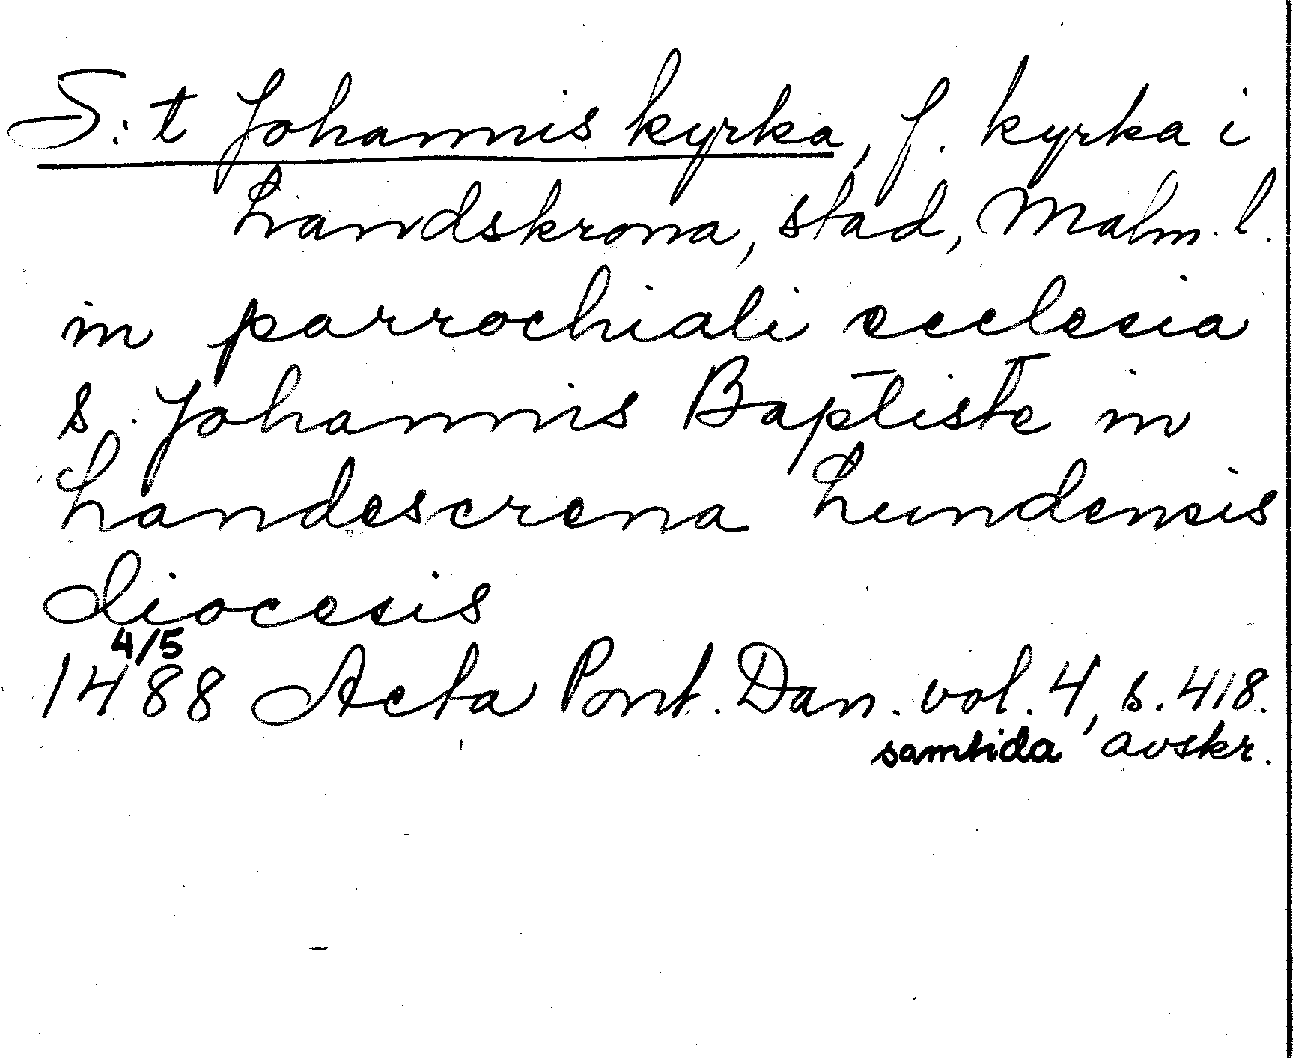 S:t Johannis kyrka, f. kyrka i
Landskrona, stad, Malm. l.
in parrochiali ecclesia
s. Johannis Bap̄tistē in
Landescrena Lundensis
diocesis
4/5
1488 Acta Pont. Dan. vol. 4, s. 418.
samtida avskr.